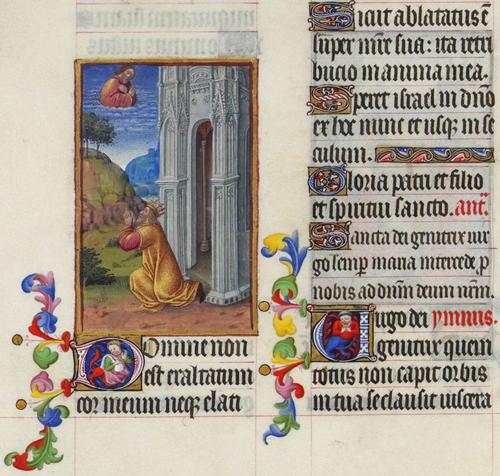 Domine non
est exaltatum
cor meum neqꝫ elati
Sicut ablatatus ē
super mr̄e sua: ita retri
bucio in anima mea.
Speret israel in dn̄o
ex hoc nunc et usqꝫ in se
culum.
Gloria patri et filio
et spiritui sancto. ant̄.
Sancta dei genitrix uir
go semꝑ maria intercede, ꝓ
nobis ad dn̄m deum nr̄m
Uirgo dei ymnus.
genitrix quem
totus non capit orbis
in tua se clausit uiscera